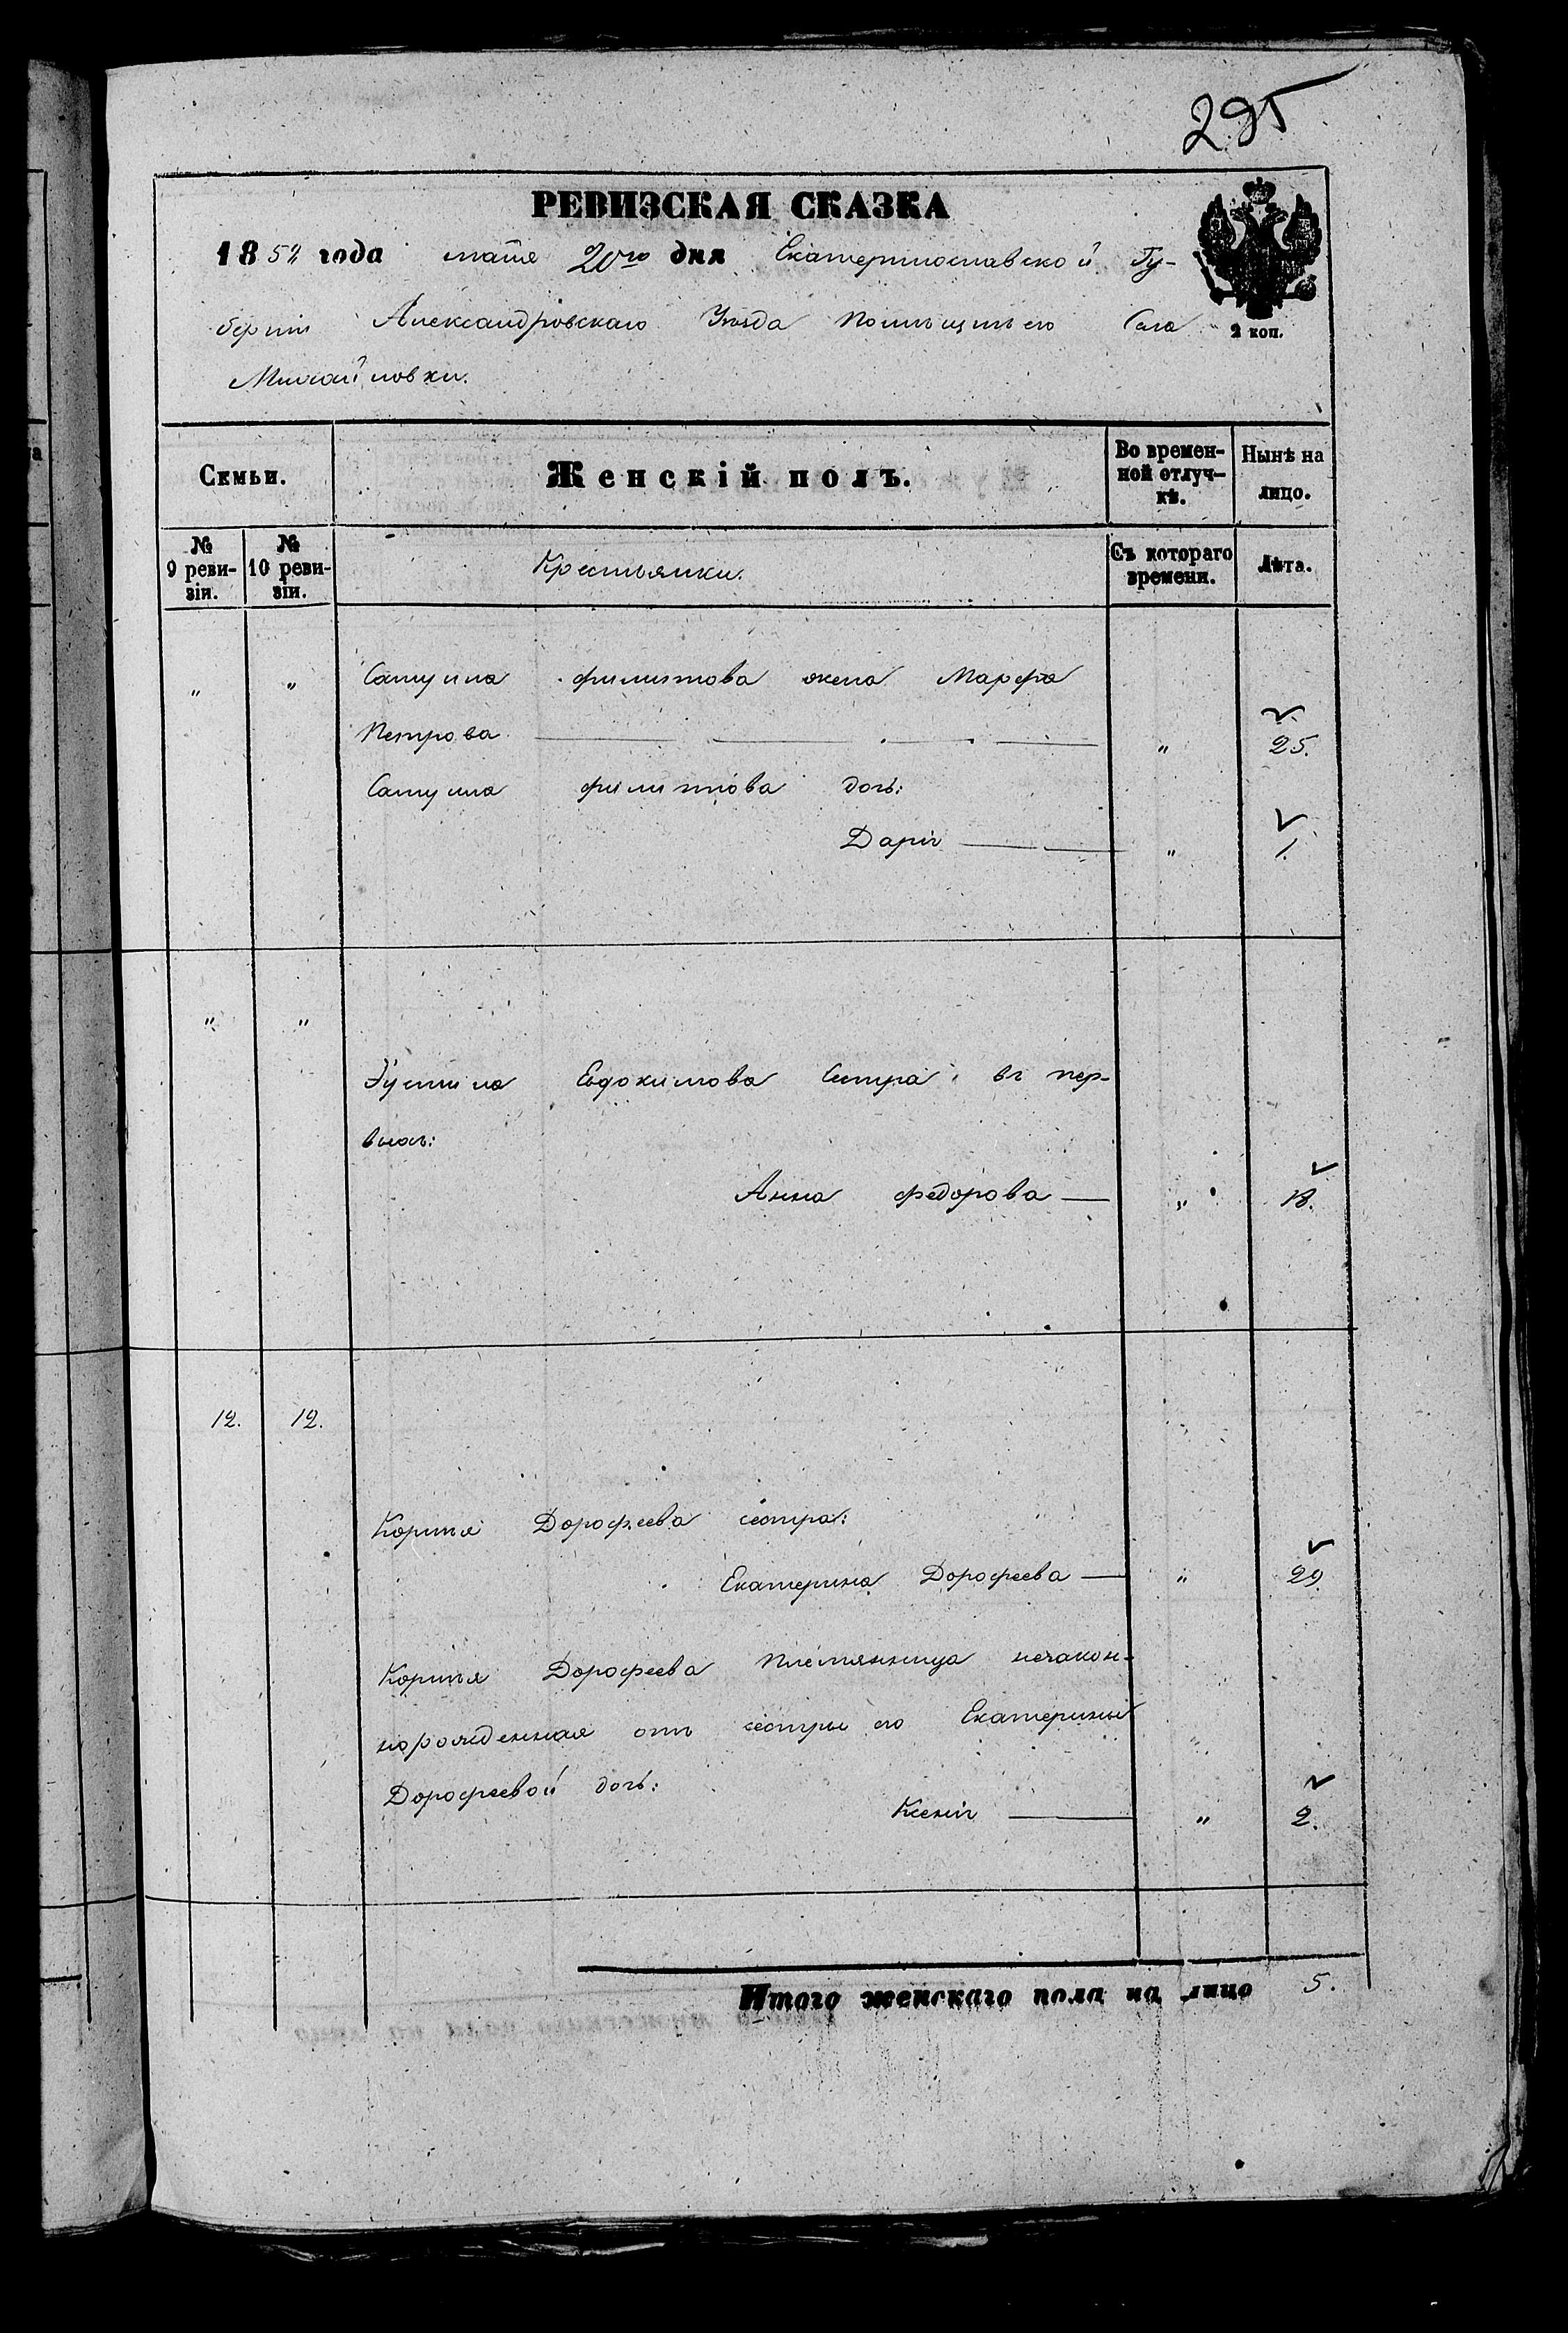 295
РЕВИЗСКАЯ СКАЗКА
1858 года маия 20го дня Екатеринославской Гу-
берніи Александровскаго Уѣзда Помѣщичьего Села
2 коп.
Михайловки.
Семьи.
Женскій полъ.
Во времен-
ной отлуч-
кѣ.
Нынѣ на
лицо.
№
9 реви-
зіи.
№
10 реви-
зіи.
Крестьянки.
Съ котораго
времени.
Лѣта.
" " Самуила филипова жена Марфа
Петрова " 25.
Самуила филипова дочь:
Дарія " 1.
" "
Устина Евдокимова Сестра въ пер-
выхъ:
Анна федорова " 18.
12. 12.
Корнѣя Дорофеева сестра:
Екатерина Дорофеева " 29.
Корнѣя Дорофеева племянница незакон-
норожденная отъ сестры его Екатерины "
Дорофеевой дочь:
Ксенія " 2.
Итого женскаго пола на лицо 5.